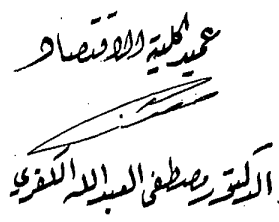 عميد كلية الاقتصاد
الدكتور مصطفى العبد الله الكفري